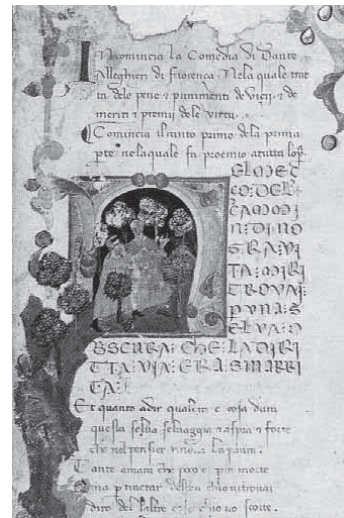 Incomincia la Comedia di Dante
Alleghieri di fiorenca. Nela quale trac
ta dele pene e punimenti de vicij. e de
meriti e premij dele virtu.
Comincia il canto primo dela prima
pte nelaquale fa proemio atutta lop
NELMEÇ
ÇO DEL
CAMMI
N DI NO
STRA VI
TA MI RI
TROVAI
P UNA S
ELVA O
BSCURA CHE LA DIRI
TTA VIA ERA SMARRI
TA
Et quanto adir qualera e cosa dura
questa selva selvaggia e aspra e forte
che nel pensier la paura.
Tante amara che poco e piu morte
ma p tractar del ben chio vi trovai
diro del laltre cose chi no scorte.